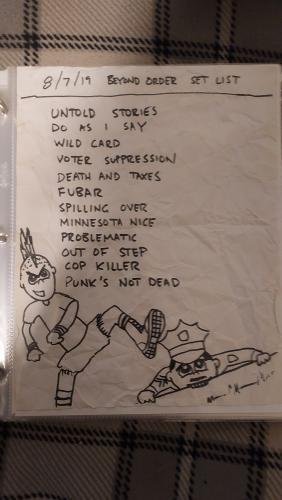 8/7/19 BEYOND ORDER SET LIST
UNTOLD STORIES
DO AS I SAY
WILD CARD
VOTER SUPPRESSION
DEATH AND TAXES
FUBAR
SPILLING OVER
MINNESOTA NICE
PROBLEMATIC
OUT OF STEP
COP KILLER
PUNK'S NOT DEAD